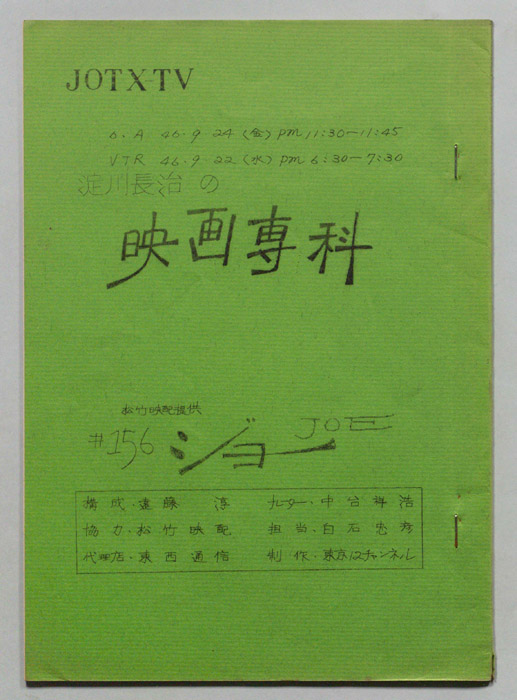 JOTX-TV
O.A 46.9.24 (金) pm 11:30-11:45
V.T.R 46.9.22 (水) pm 6:30-7:30
淀川長治の
映画専科
松竹映配提供
#156 ジョー JOE
構成・遠藤 淳
協力・松竹映配
代理店・東西通信
担当・白石忠彦
制作・東京12チャンネル